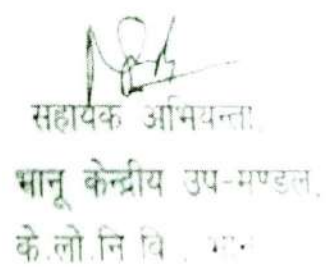 सहायक अभियन्ता
भानू केन्द्रीय उप-मण्डल,
के.लो.नि.वि.